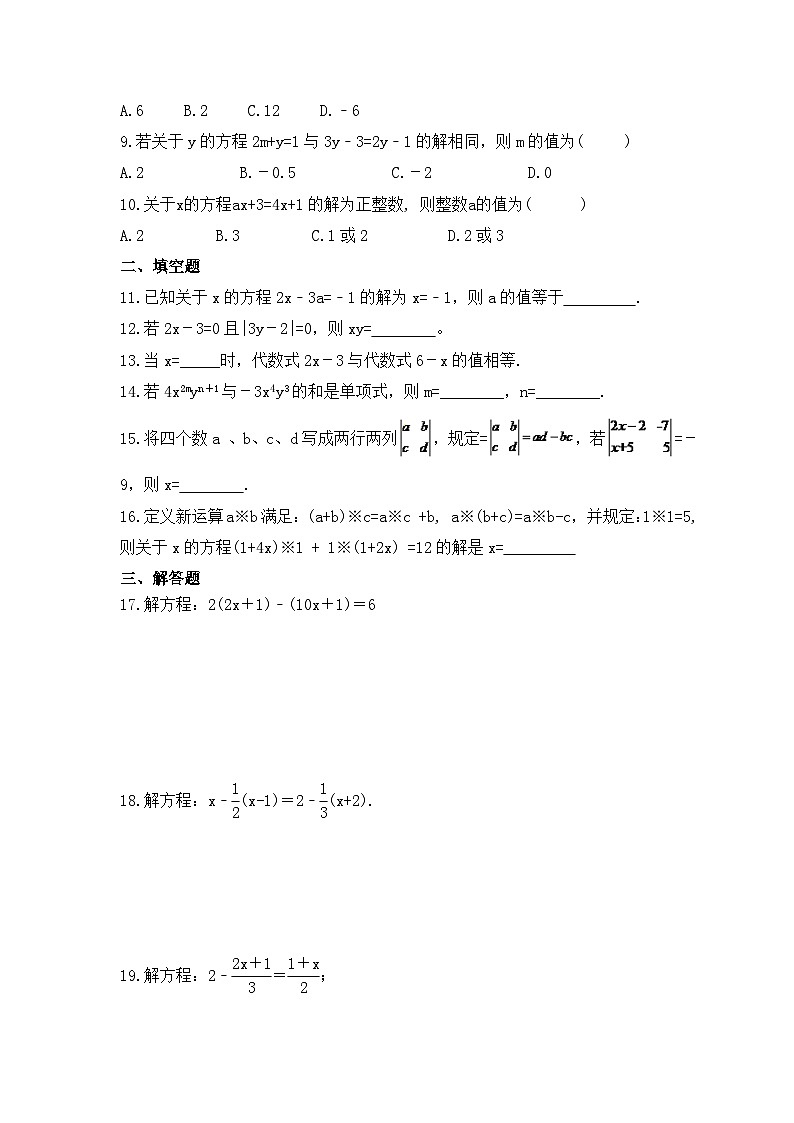 A.6 B.2 C.12 D.﹣6
9.若关于y的方程2m+y=1与3y﹣3=2y﹣1的解相同，则m的值为( )
A.2 B.－0.5 C.－2 D.0
10.关于x的方程ax+3=4x+1的解为正整数, 则整数a的值为( )
A.2 B.3 C.1或2 D.2或3
二、填空题
11.已知关于x的方程2x﹣3a=﹣1的解为x=﹣1，则a的值等于_________.
12.若2x－3=0且|3y－2|=0，则xy=________。
13.当x=_____时，代数式2x－3与代数式6－x的值相等.
14.若4x²ᵐyⁿ⁺¹与－3x⁴y³的和是单项式，则m=________，n=________.
15.将四个数a 、b、c、d写成两行两列|a b; c d|，规定=|a b; c d|=ad－bc，若|2x－2 -7; x+5 5|=－
9，则x=________.
16.定义新运算a※b满足：(a+b)※c=a※c +b, a※(b+c)=a※b-c，并规定：1※1=5,
则关于x的方程(1+4x)※1 + 1※(1+2x) =12的解是x=_________
三、解答题
17.解方程：2(2x＋1)﹣(10x＋1)＝6
18.解方程：x﹣1/2(x-1)＝2﹣1/3(x+2).
19.解方程：2﹣(2x＋1)/3=(1＋x)/2；